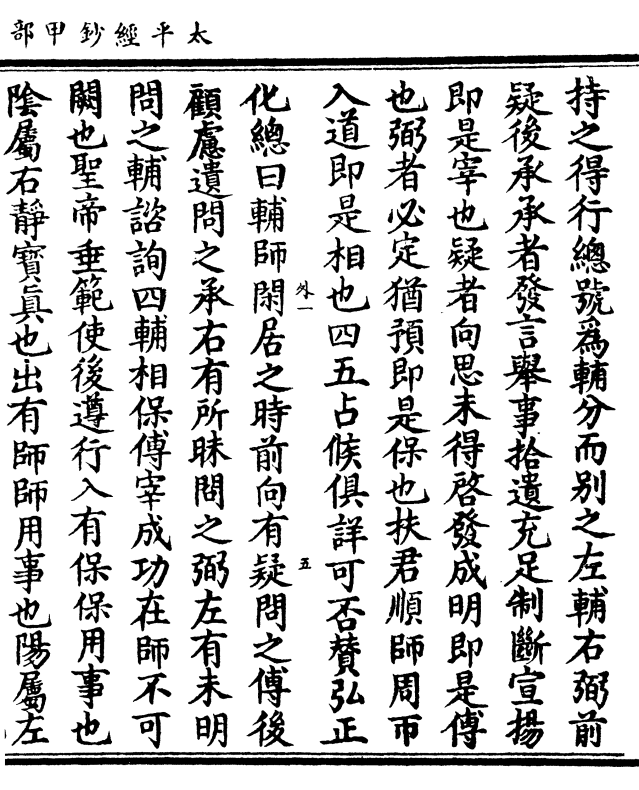 太平經鈔甲部
持之得行總號爲輔分而别之左輔右弼前
疑後承承者發言舉事拾遺充足制斷宣揚
即是宰也疑者向思未得啓發成明即是傅
也弼者必定猶預即是保也扶君順師周帀
入道即是相也四五占候俱詳可否賛弘正
外一
五
化總曰輔師閑居之時前向有疑問之傅後
顧慮遺問之承右有所昧問之弼左有未明
問之輔諮詢四輔相保傅宰成功在師不可
闕也聖帝垂範使後遵行入有保保用事也
陰屬右靜寶真也出有師師用事也陽屬左